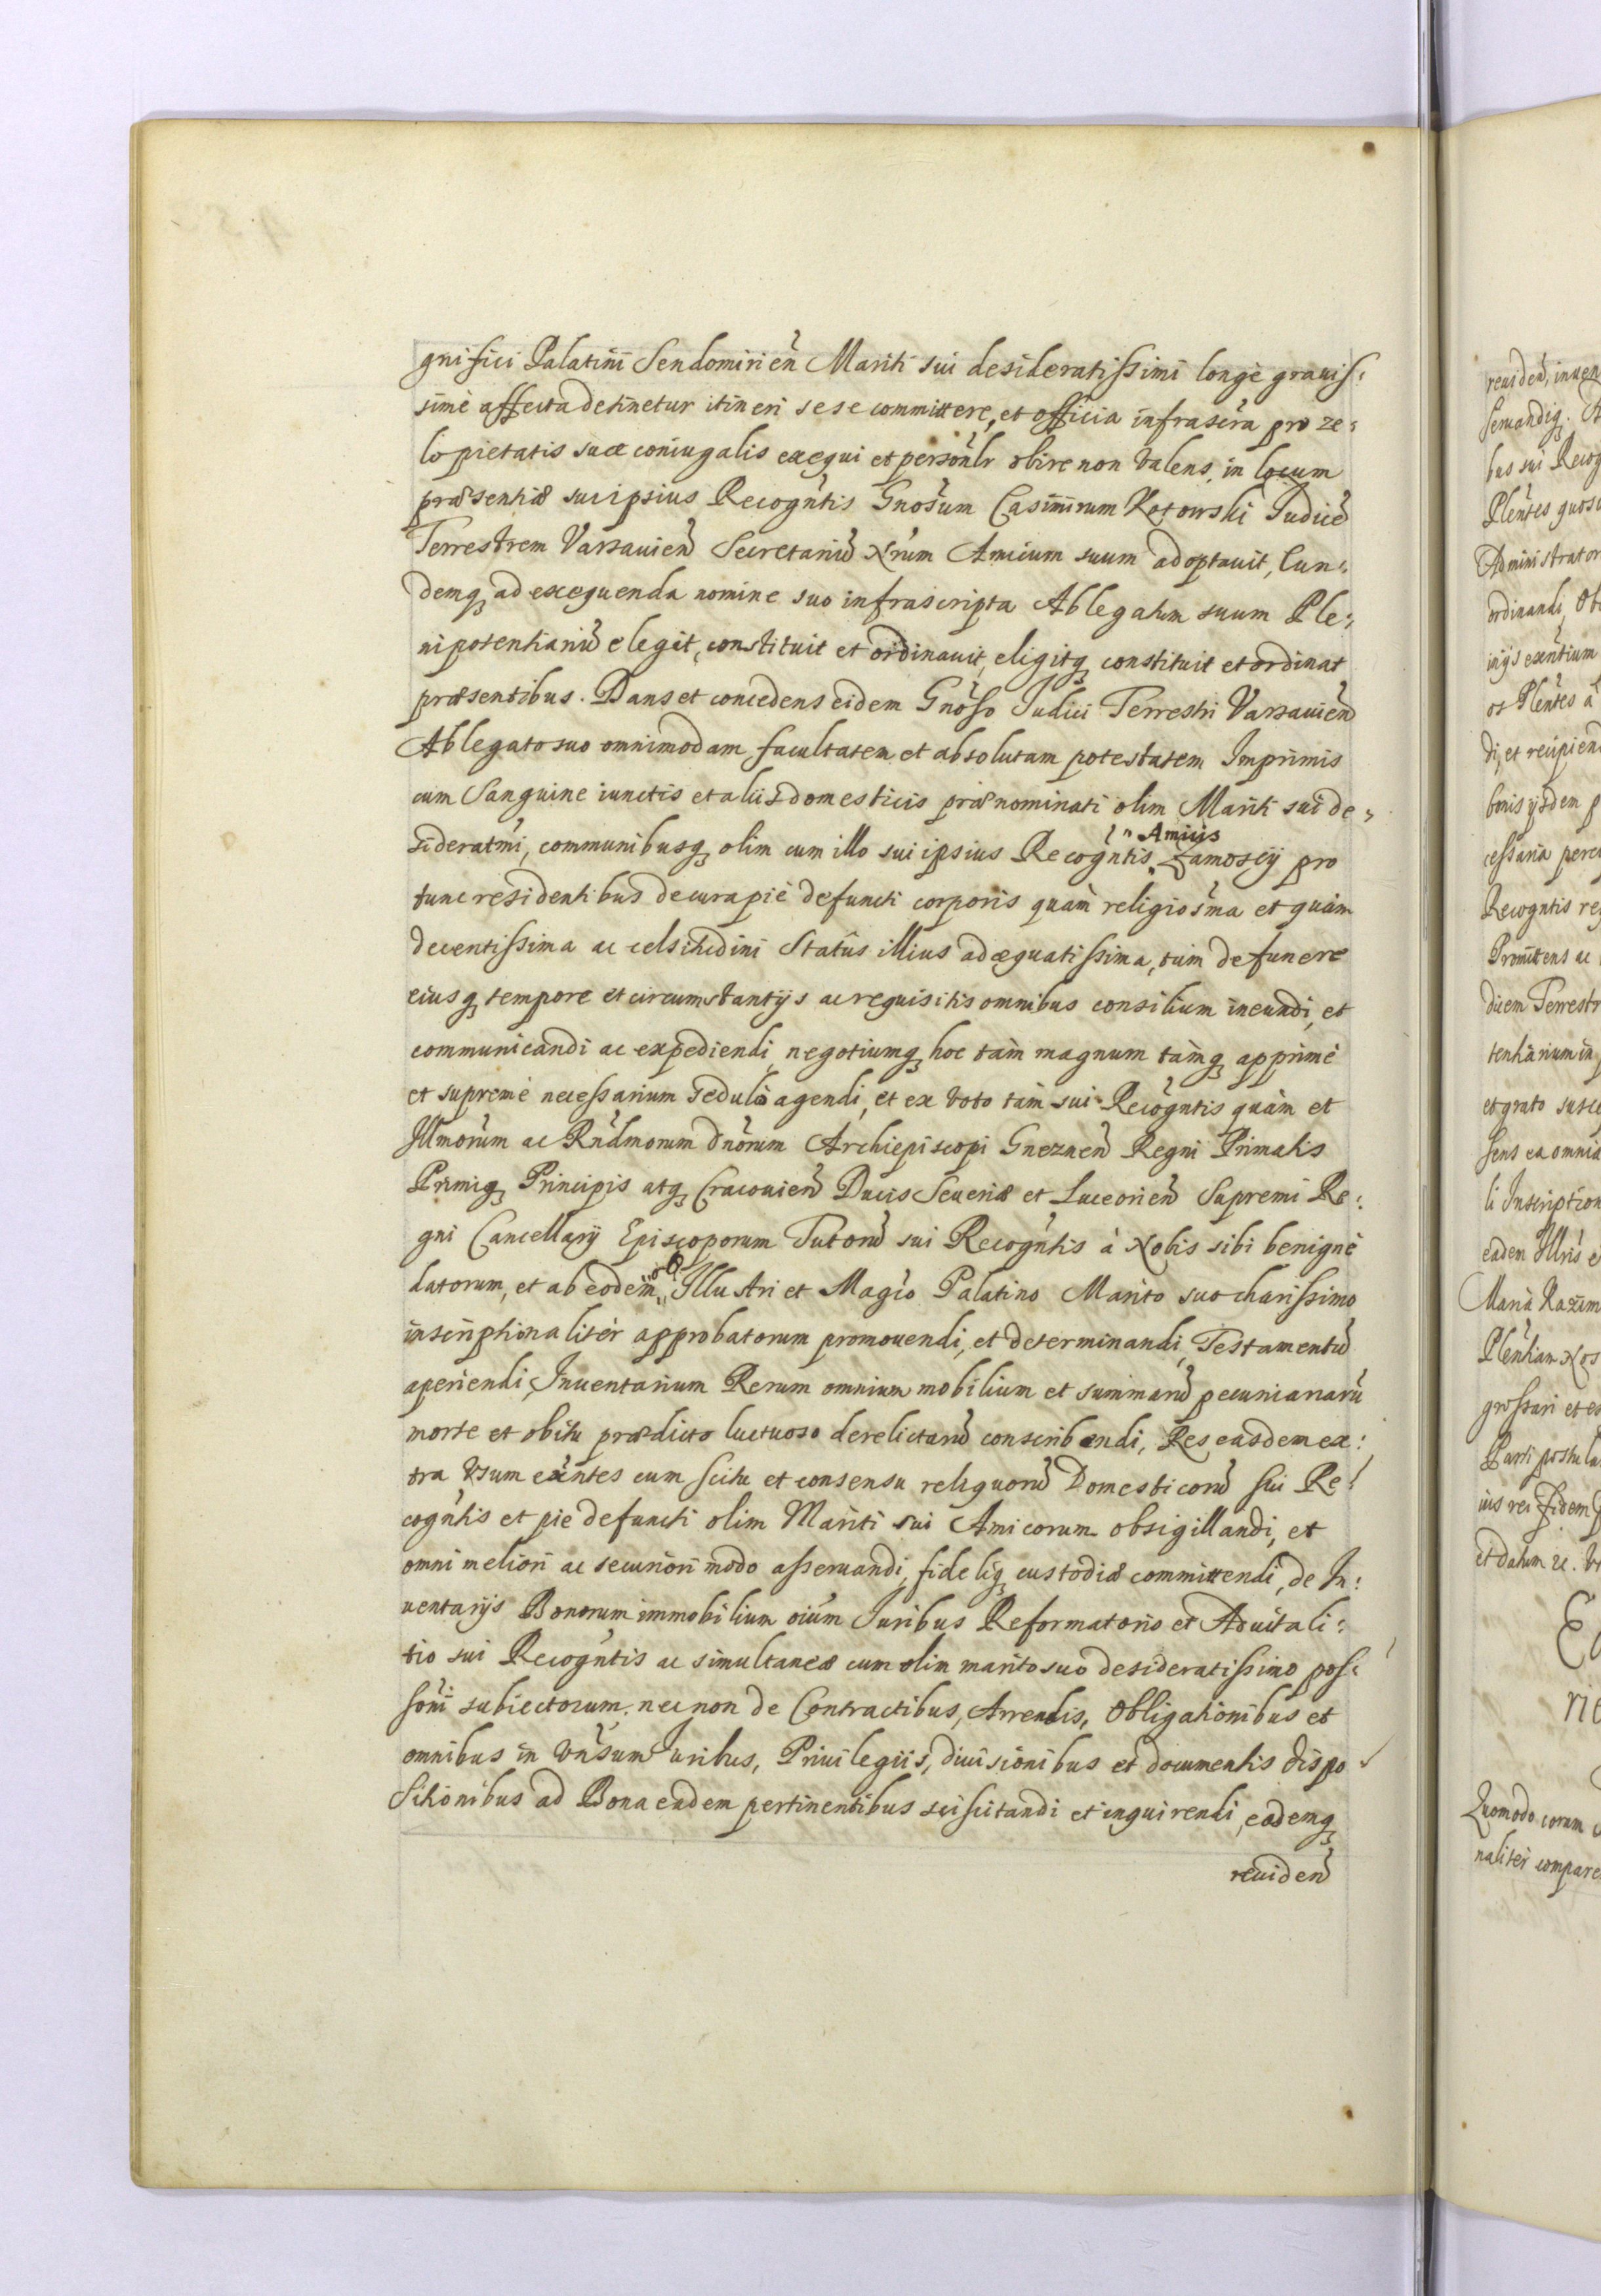 gnifici Palatini Sendomirien̄ Mariti sui desideratissimi longè grauis:
simè affecta detinetur itineri sese committere, et officia infrascra pro ze:
lo pietatis suæ coniugalis exequi et personlr obire non valens, in locum
præsentiæ sui ipsius Recogntis Gnosum Casimirum Kotowski Judicē
Terrestrem Varsauien̄ Secretariū Nrum Amicum suum adoptauit, Eun:
demq ad exequenda nomine suo infrascripta Ablegatum suum Ple:
nipotentiariū elegit, constituit et ordinauit, eligitq constituit et ordinat
præsentibus. Dans et concedens eidem Gnoso Judici Terrestri Varsauien̄
Ablegato suo omnimodam facultatem et absolutam potestatem Imprimis
cum Sanguine iunctis et aliis domesticis prænominati olim Mariti sui de:
sideratmi, communibusq olim cum illo sui ipsius Recogntis Zamoscij pro
in Amicis
tunc residentibus de cura piè defuncti corporis quàm religiosma et quàm
decentissima ac celsitudini Statûs illius adæquatissima, tum de funere
eiusq tempore et circumstantijs ac requisitis omnibus consilium ineundi, et
communicandi ac expediendi, negotiumq hoc tàm magnum tàmq apprimè
et supremè necessarium sedulò agendi, et ex voto tàm sui Recogntis quàm et
Illmorum ac Rndmorum Dnorum Archiepiscopi Gneznen̄ Regni Primatis
Primiq Principis atq Cracouien̄ Ducis Seueriæ et Luceorien̄ Supremi Re:
gni Cancellarij Episcoporum Tutorū sui Recogntis à Nobis sibi benignè
datorum, et ab eodem Illustri et Magco Palatino Marito suo charissimo
inscriptionalitèr approbatorum promouendi, et determinandi, Testamentū
aperiendi, Inuentarium Rerum omnium mobilium et summarū pecuniariarū
morte et obitu prædicto luctuoso derelictarū conscribendi, Res easdem ex:
tra Vsum exntes cum scitu et consensu reliquorū Domesticorū sui Re:
cogntis et pie defuncti olim Mariti sui Amicorum obsigillandi, et
omni meliori ac securiori modo asseruandi, fideliq custodiæ committendi, de In:
uentarijs Bonorum immobilium oium Juribus Reformatorio et Aduitali:
tio sui Recogntis ac simultaneæ cum olim marito suo desideratissimo pos:
soni subiectorum, nec non de Contractibus, Arrendis, Obligationibus et
omnibus in vnsum Juribus, Priuilegiis, diuisionibus et documentis dispo
sitionibus ad Bona eadem pertinentibus sciscitandi et inquirendi, eademq
reuiden̄